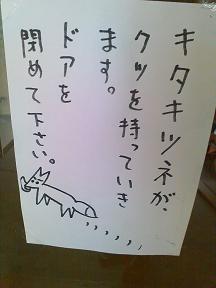 キタキツネが、
クツを持っていき
ます。
ドアを
閉めて下さい。